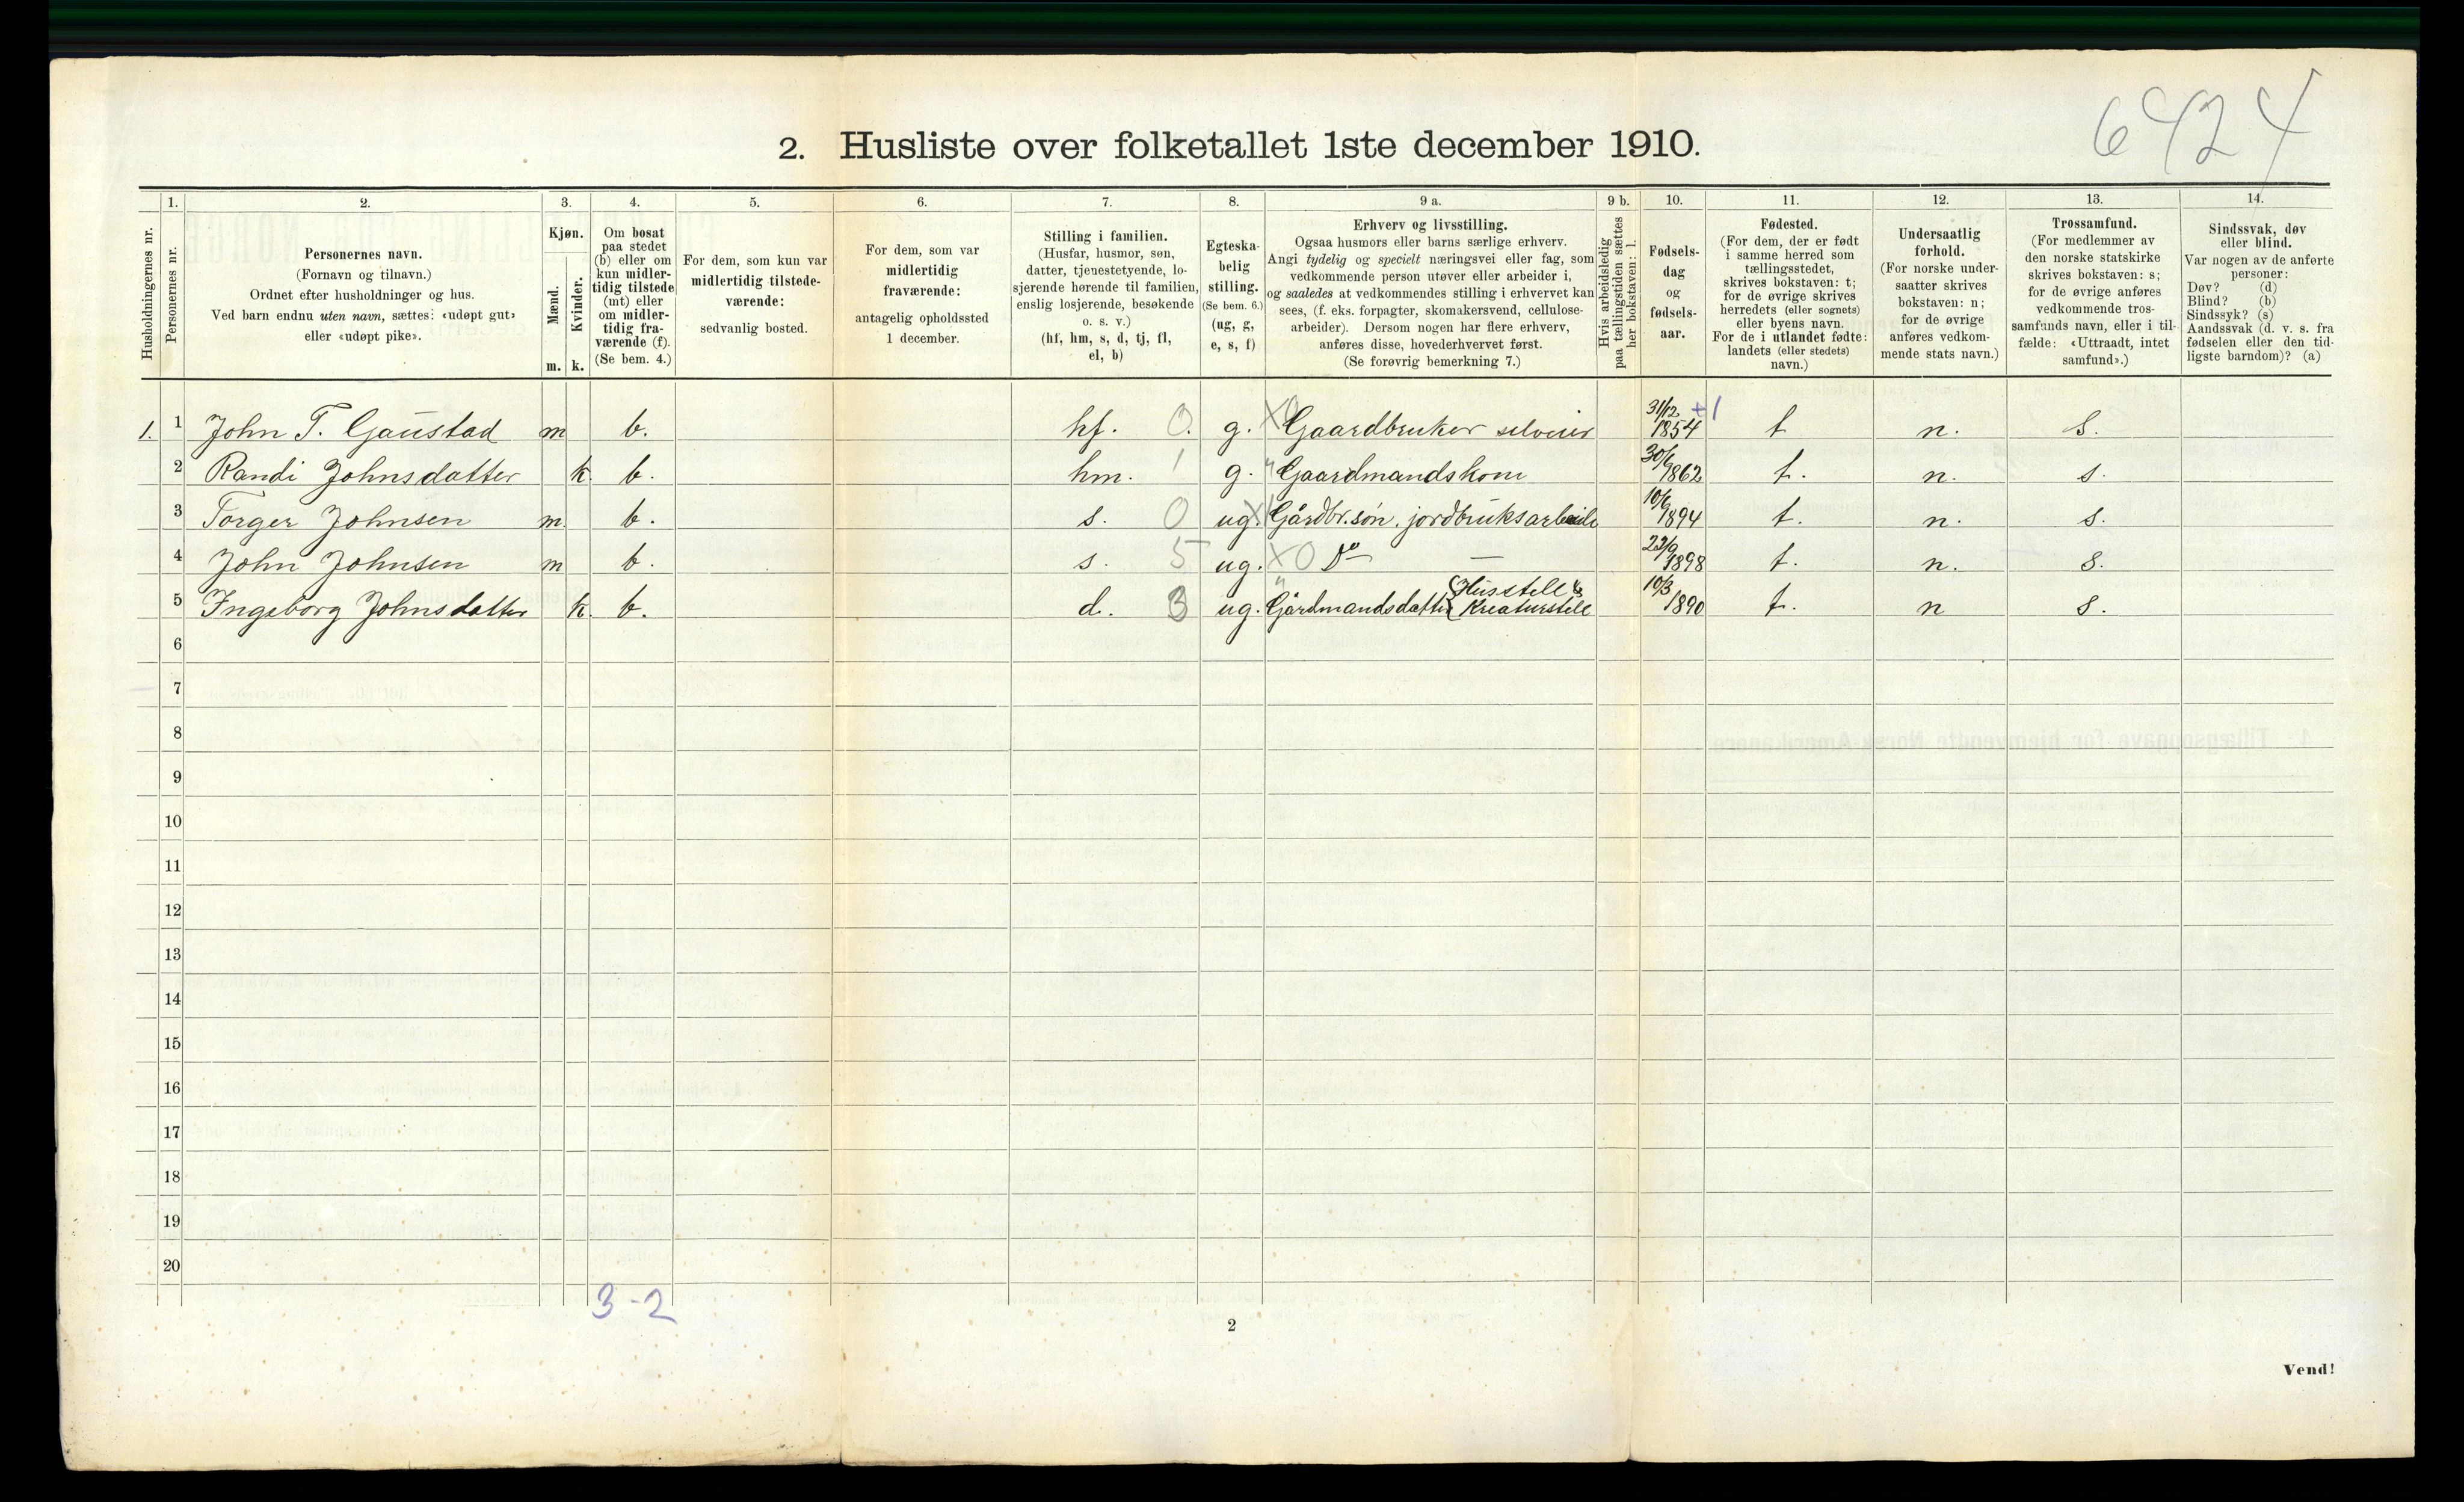 6424
2. Husliste over folketallet 1ste december 1910.
Husholdningernes nr.
1.
Personernes nr.
2.
Personernes navn.
(Fornavn og tilnavn.)
Ordnet efter husholdninger og hus.
Ved barn endnu uten navn, sættes: «udøpt gut»
eller «udøpt pike».
3.
Kjøn.
Mænd.
Kvinder.
m. k.
4.
Om bosat
paa stedet
(b) eller om
kun midler-
tidig tilstede
(mt) eller
om midler-
tidig fra-
værende (f).
(Se bem. 4.)
5.
For dem, som kun var
midlertidig tilstede-
værende:
sedvanlig bosted.
6.
For dem, som var
midlertidig
fraværende:
antagelig opholdssted
1 december.
7.
Stilling i familien.
(Husfar, husmor, søn,
datter, tjenestetyende, lo-
sjerende hørende til familien,
enslig losjerende, besøkende
o. s. v.)
(hf, hm, s, d, tj, fl,
el, b)
8.
Egteska-
belig
stilling.
(Se bem. 6.)
(ug, g,
e, s, f)
9 a.
Erhverv og livsstilling.
Ogsaa husmors eller barns særlige erhverv.
Angi tydelig og specielt næringsvei eller fag, som
vedkommende person utøver eller arbeider i,
og saaledes at vedkommendes stilling i erhvervet kan
sees, (f. eks. forpagter, skomakersvend, cellulose-
arbeider). Dersom nogen har flere erhverv,
anføres disse, hovederhvervet først.
(Se forøvrig bemerkning 7.)
9 b.
Hvis arbeidsledig
paa tællingstiden sættes
her bokstaven: l.
10.
Fødsels-
dag
og
fødsels-
aar.
11.
Fødested.
(For dem, der er født
i samme herred som
tællingsstedet,
skrives bokstaven: t;
for de øvrige skrives
herredets (eller sognets)
eller byens navn.
For de i utlandet fødte:
landets (eller stedets)
navn.)
12.
Undersaatlig
forhold.
(For norske under-
saatter skrives
bokstaven: n;
for de øvrige
anføres vedkom-
mende stats navn.)
13.
Trossamfund.
(For medlemmer av
den norske statskirke
skrives bokstaven: s;
for de øvrige anføres
vedkommende tros-
samfunds navn, eller i til-
fælde: «Uttraadt, intet
samfund».)
14.
Sindssvak, døv
eller blind.
Var nogen av de anførte
personer:
Døv? (d)
Blind? (b)
Sindssyk? (s)
Aandssvak (d. v. s. fra
fødselen eller den tid-
ligste barndom)? (a)
1. 1 John T. Gaustad m b. hf. 0. g. X0 Gaardbruker selveier 31/12 1854 +1 t n. s.
2 Randi Johnsdatter k. b. hm. 1 g. " Gaardmandskone 1862 t. n. s.
3 Torger Johnsen m. b. s. 0 ug. X1 Gårdbr.søn. jordbruksarbeide 1894 t. n. s.
4 John Johnsen m b. s. 5 ug. X0 Do — 1898 t. n. s.
5 Ingeborg Johnsdatter k. b. d. 3 ug. " Gårdmandsdatter { Husstell & Kreaturstell 10/3 1890 t. n s.
6
7
8
9
10
11
12
13
14
15
16
17
18
19
20
3-2
2
Vend!